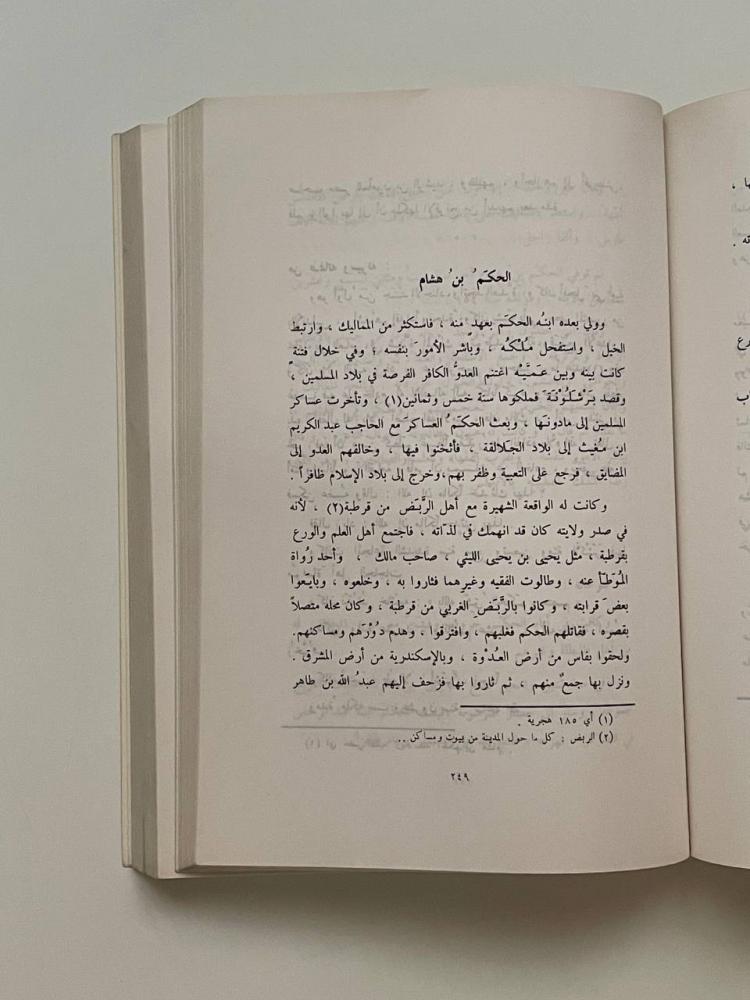 الحكَمُ بنُ هشام
وولي بعده ابنُه الحكَم بعهدٍ منه ، فاستكثر من المماليك ، وارتبط
الخيل ، واستفحل مُلْكُه ، وباشر الأمورَ بنفسه ؛ وفي خلال فتنةٍ
كانت بينه وبين عَمَّيْه اغتنم العدوُّ الكافر الفرصة في بلاد المسلمين ،
وقصد بَرْشَلُونَةَ فملكوها سنة خمس وثمانين(١) ، وتأخرت عساكر
المسلمين إلى مادونها ، وبعث الحكَمُ العساكرَ مع الحاجب عبد الكريم
ابن مُغيث إلى بلاد الجَلالقة ، فأثخنوا فيها ، وخالفهم العدو إلى
المضايق ، فرجع على التعبية وظفر بهم،وخرج إلى بلاد الإسلام ظافراً .
وكانت له الواقعة الشهيرة مع أهل الرَّبَض من قرطبة(٢) ، لأنه
في صدر ولايته كان قد انهمك في لذّاته ، فاجتمع أهل العلم والورع
بقرطبة ، مثل يحيى بن يحيى الليثي ، صاحب مالك ، وأحد رُواة
المُوَطّأ عنه ، وطالوت الفقيه وغيرهما فثاروا به ، وخلعوه ، وبايَعوا
بعضَ قرابته ، وكانوا بالرَّبَضِ الغربي من قرطبة ، وكان محله متصلاً
بقصره ، فقاتلهم الحكم فغلبهم ، وافترقوا ، وهدم دُوْرَهم ومساكنهم.
ولحقوا بفاس من أرض العُدْوة ، وبالإسكندرية من أرض المشرق .
ونزل بها جمعٌ منهم ، ثم ثاروا بها فزحف إليهم عبدُ الله بن طاهر
(١) أي ١٨٥ هجرية .
(٢) الربض : كل ما حول المدينة من بيوت ومساكن ..
٢٤٩